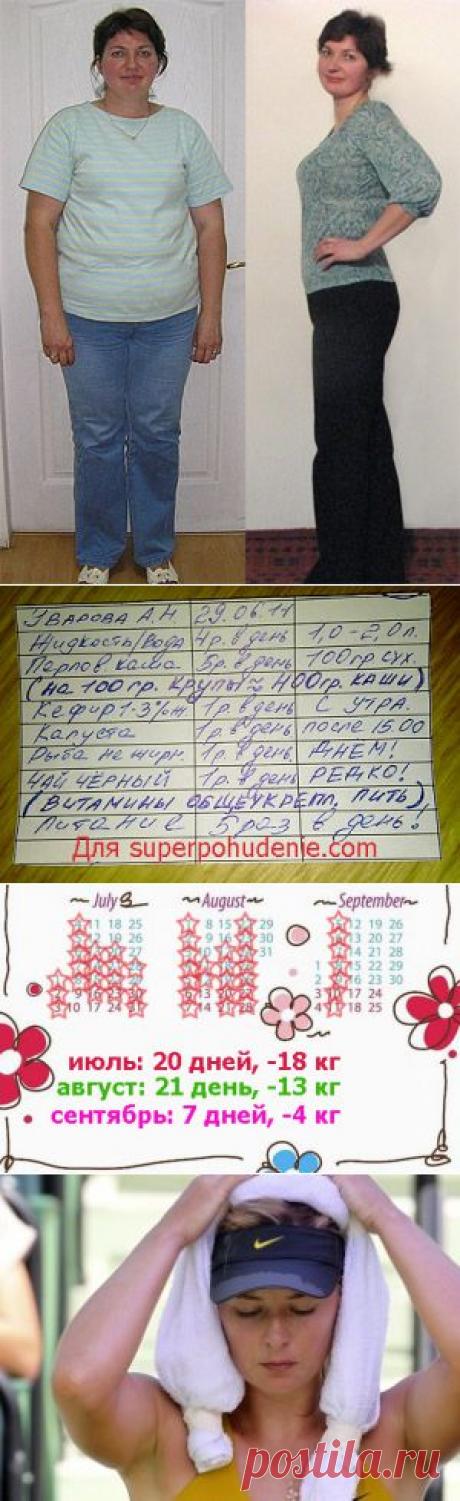 УВАРОВА А.Н. 29.06.11
Жидкость/Вода 4р. в день 1,0-2,0л.
Перлов. каша 5р. в день 100гр сух.
(на 100гр. крупы ~ 400гр. каши)
Кефир 1-3% 1р. в день с УТРА.
Капуста 1р. в день после 15.00
Рыба не жирн. 1р. в день. ДНЕМ!
ЧАЙ ЧЁРНЫЙ 1р. в день РЕДКО!
(ВИТАМИНЫ ОБЩЕУКРЕПЛ. ПИТЬ)
Питание 5 раз в день!
Для superpohudenie.com
July August September
11 18 25 8 15 29 12 19 26
26 30 13 20 27
27 31 14 21 28
1 22 29
2 16 23 30
3 10 17 24
18 25
июль: 20 дней, -18 кг
август: 21 день, -13 кг
сентябрь: 7 дней, -4 кг
postila.ru